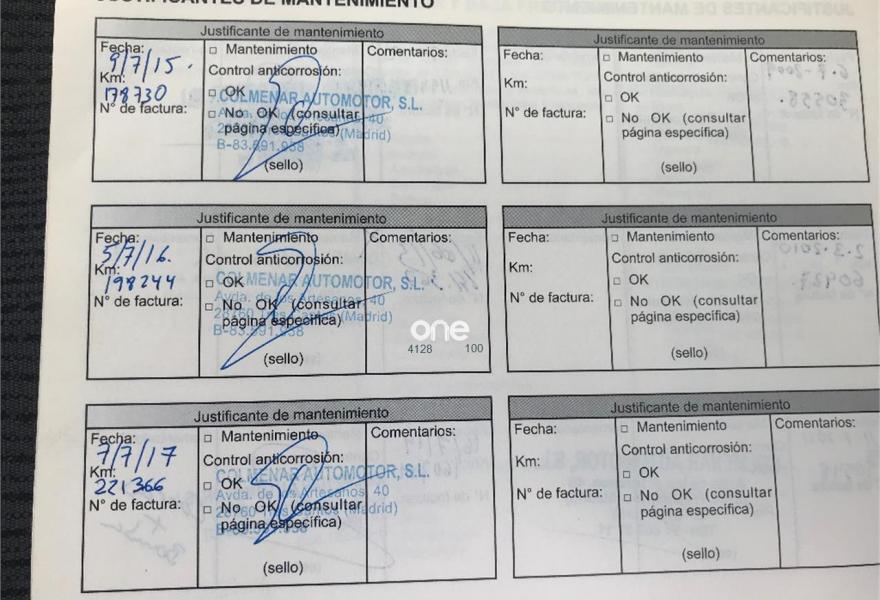 JUSTIFICANTES DE MANTENIMIENTO
Justificante de mantenimiento
Fecha:
9/7/15.
Km:
178730
N° de factura:
□ Mantenimiento
Control anticorrosión:
□ OK
□ No OK (consultar
página específica)
(sello)
COLMENAR AUTOMOTOR, S.L.
40
(Madrid)
B-83.691.958
Comentarios:
Justificante de mantenimiento
Fecha:
Km:
N° de factura:
□ Mantenimiento
Control anticorrosión:
□ OK
□ No OK (consultar
página específica)
(sello)
Comentarios:
Justificante de mantenimiento
Fecha:
5/7/16.
Km:
198244
N° de factura:
□ Mantenimiento
Control anticorrosión:
□ OK
□ No OK (consultar
página específica)
(sello)
COLMENAR AUTOMOTOR, S.L.
Avda. de los Artesanos 40
28760 Tres Cantos (Madrid)
B-83.691.958
Comentarios:
one
4128 100
Justificante de mantenimiento
Fecha:
Km:
N° de factura:
□ Mantenimiento
Control anticorrosión:
□ OK
□ No OK (consultar
página específica)
(sello)
Comentarios:
Justificante de mantenimiento
Fecha:
7/7/17
Km:
221366
N° de factura:
□ Mantenimiento
Control anticorrosión:
□ OK
□ No OK (consultar
página específica)
(sello)
COLMENAR AUTOMOTOR, S.L.
Avda. de los Artesanos 40
28760 Tres Cantos (Madrid)
Comentarios:
Justificante de mantenimiento
Fecha:
Km:
N° de factura:
□ Mantenimiento
Control anticorrosión:
□ OK
□ No OK (consultar
página específica)
(sello)
Comentarios: